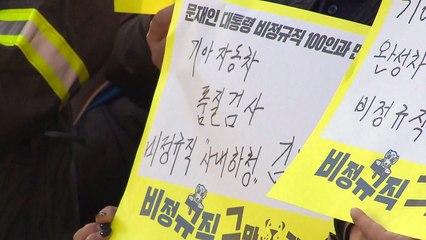 문재인 대통령 비정규직 100인과 만
기아자동차
품질검사
비정규직 "사내하청"
비정규직 그만
기아
완성차
비정규직
비정규직